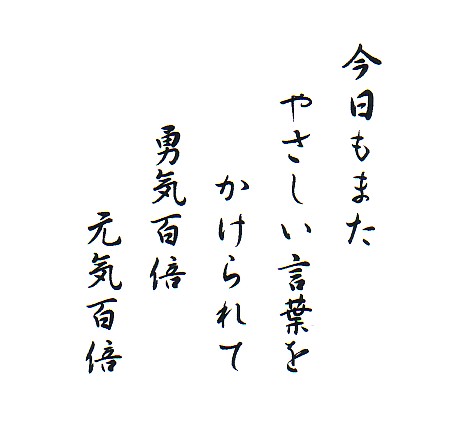 今日もまた
やさしい言葉を
かけられて
勇気百倍
元気百倍